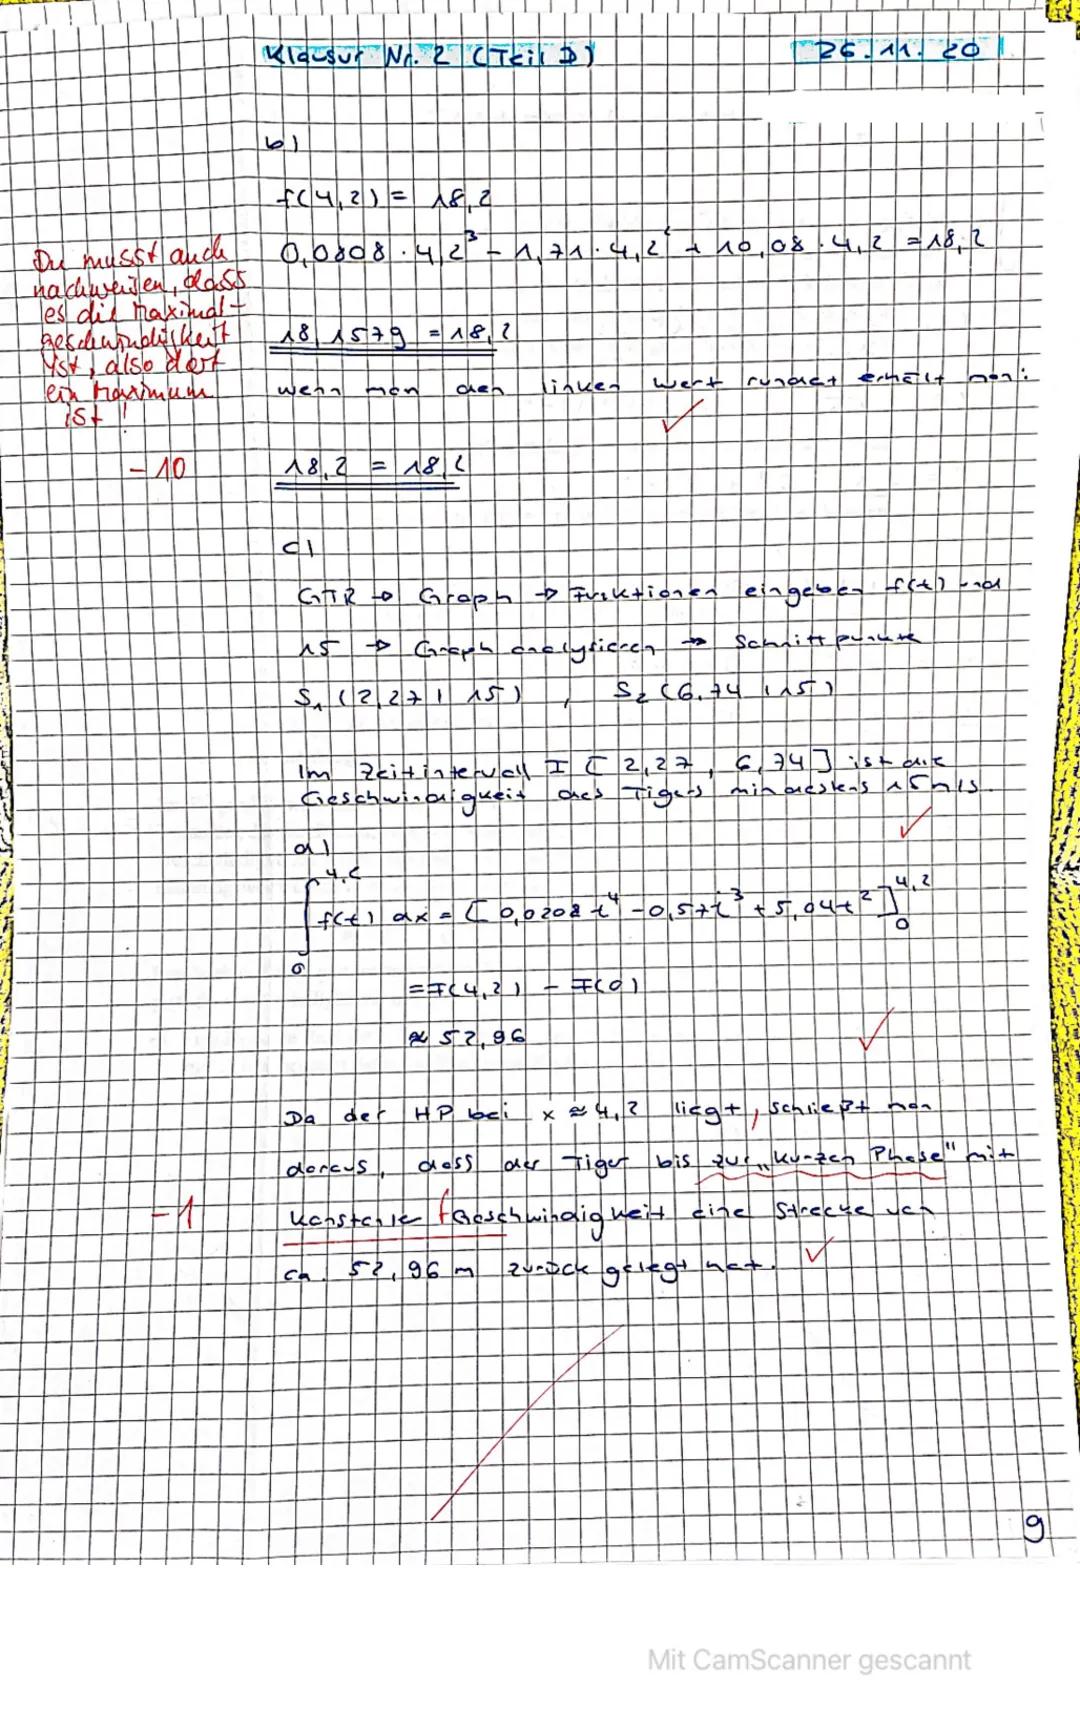 Klausur Nr. 2 (Teil B)
26.11.20
b)
f(4,2) = 18,2
0,0808 · 4,2³ - 1,71 · 4,2² + 10,08 · 4,2 = 18,2
Du musst auch
nachweisen, dass
es die Maximal-
geschwindigkeit
ist, also dort
ein Maximum
ist!
-10
18,1579 = 18,2
wenn man den linken Wert rundet erhält man:
18,2 = 18,2
c)
GTR → Graph → Funktionen eingeben f(t) und
15 → Graph analysieren → Schnittpunkte
S₁ (2,27 | 15) , S₂ (6,74 | 15)
Im Zeitintervall I [2,27, 6,74] ist die
Geschwindigkeit des Tigers mindestens 15 m/s.
d)
4,2
∫ f(t) dx = [0,0202 t⁴ - 0,57t³ + 5,04t²]
4,2
0
0
= F(4,2) - F(0)
≈ 52,96
Da der HP bei x ≈ 4,2 liegt, schließt man
daraus, dass der Tiger bis zur „kurzen Phase" mit
-1
konstanter Geschwindigkeit eine Strecke von
f
ca. 52,96 m zurück gelegt hat.
9
Mit CamScanner gescannt